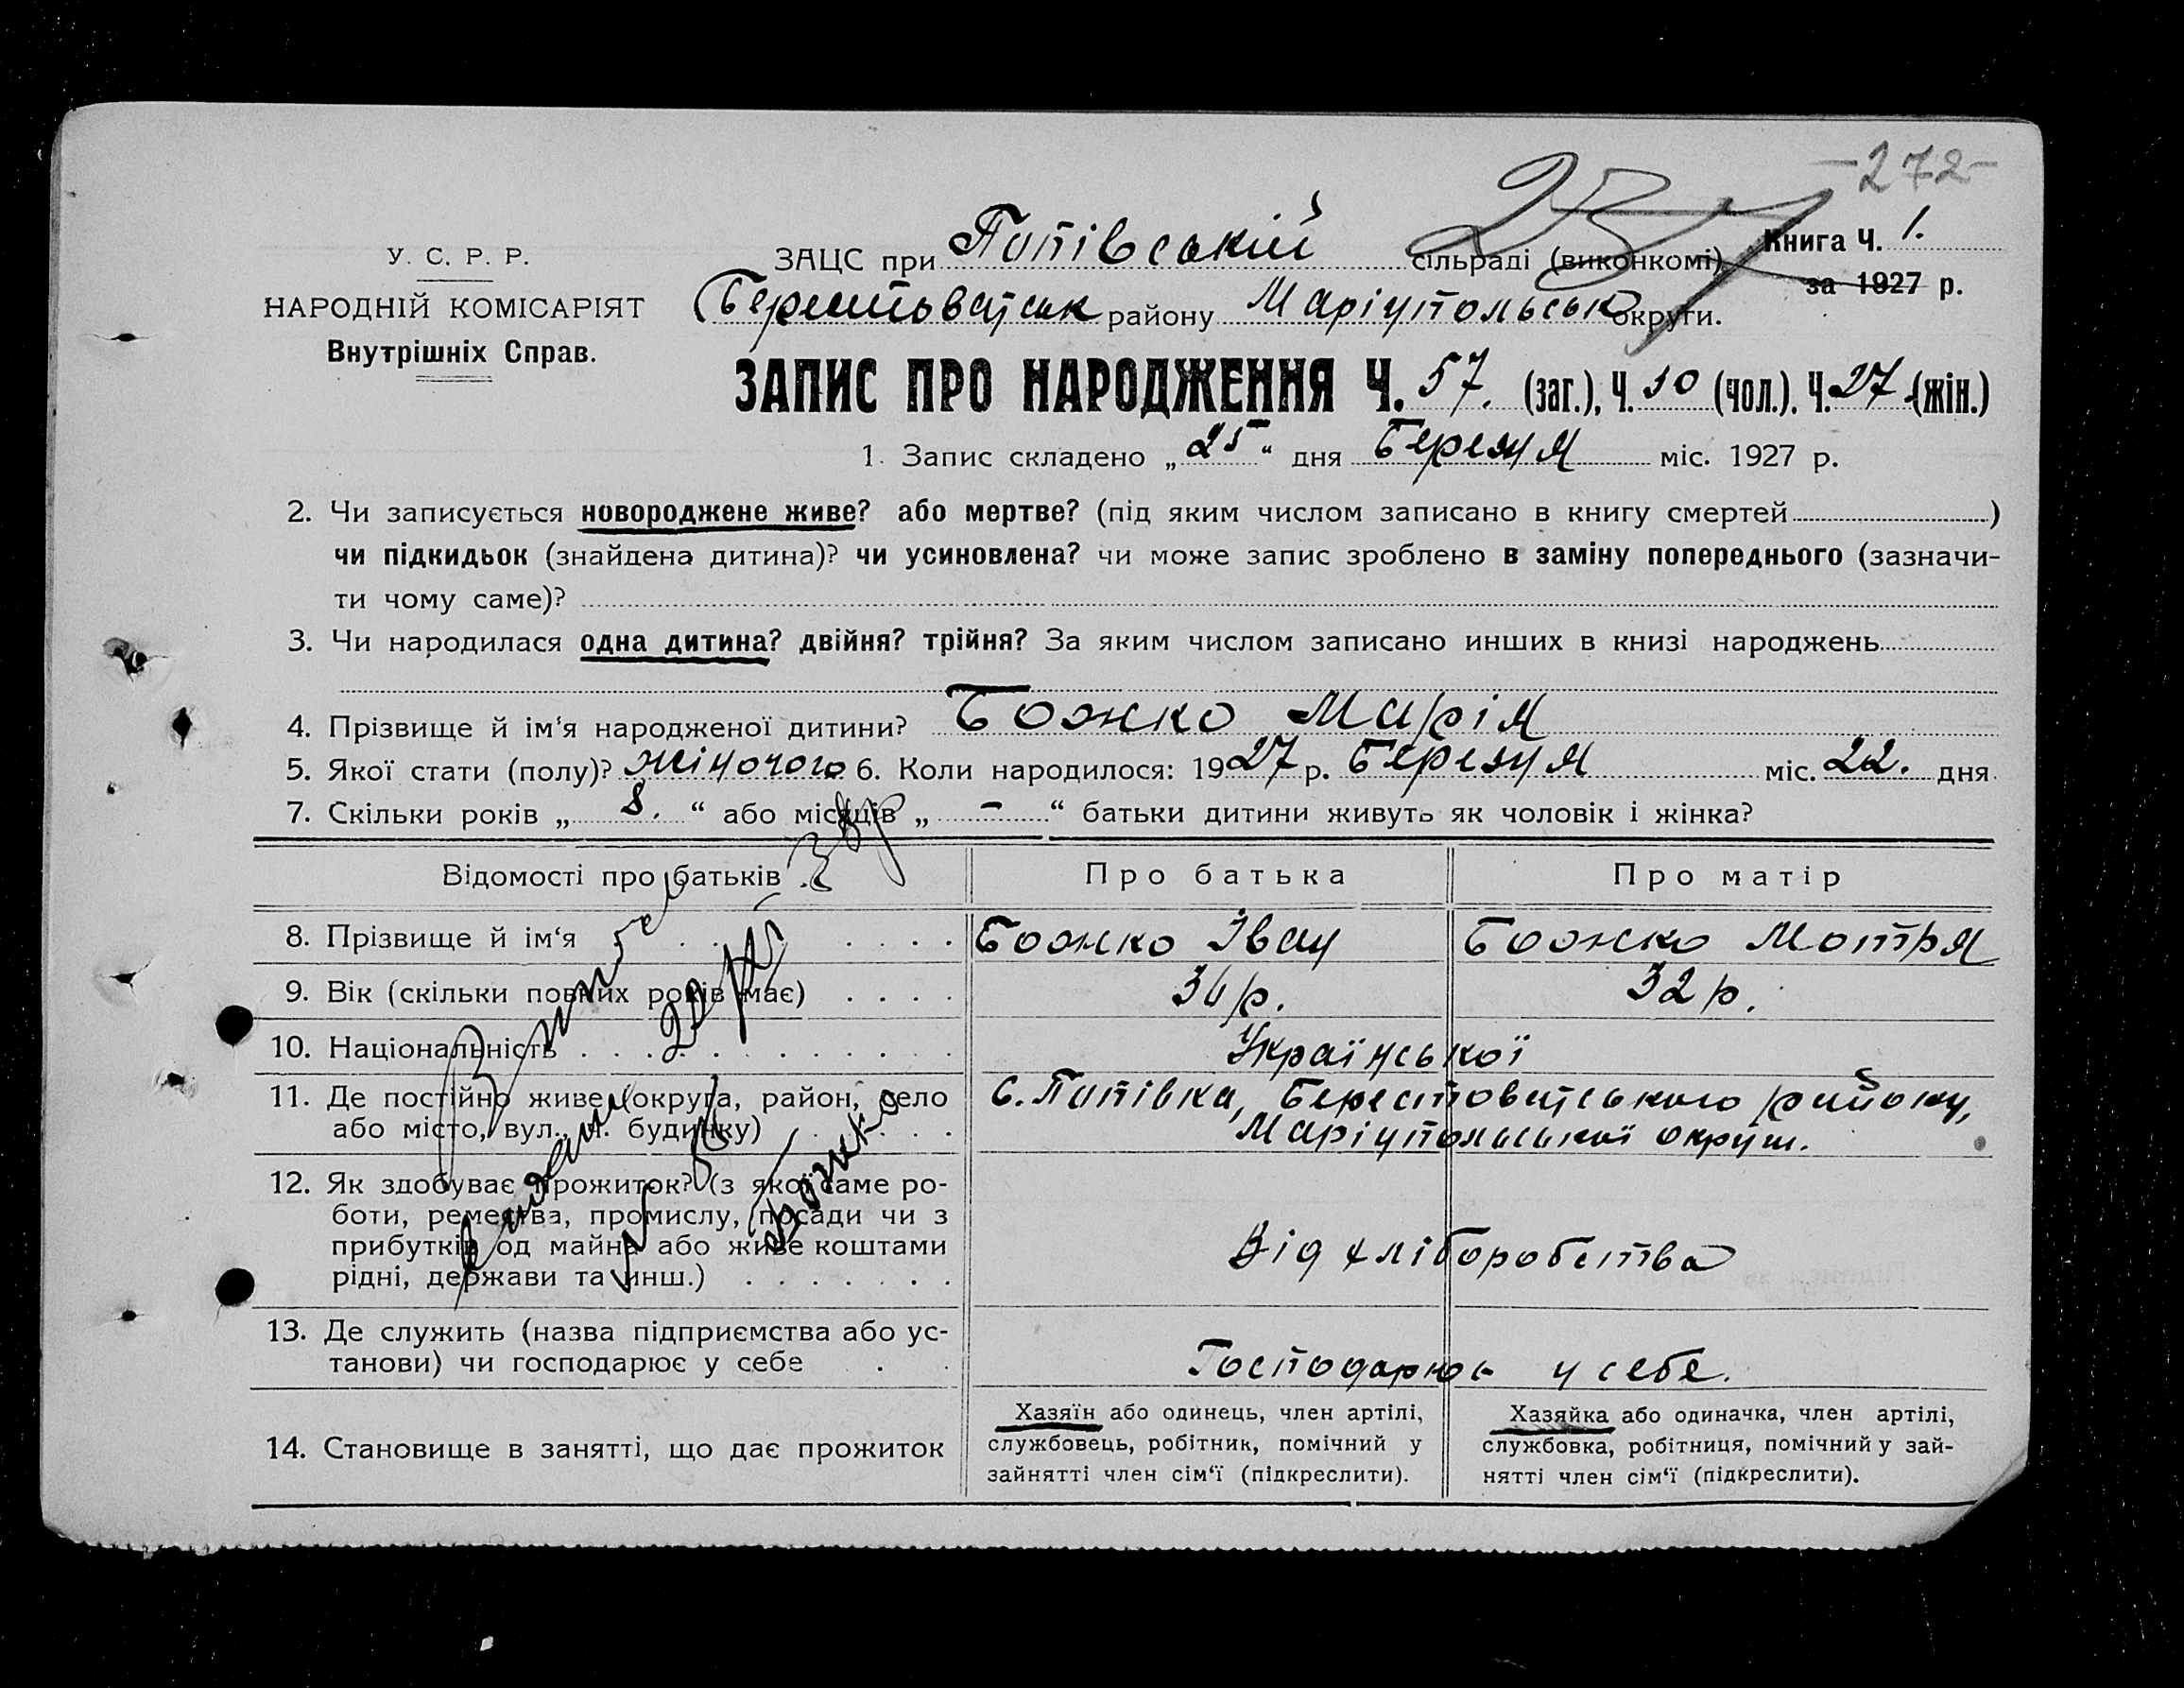 -272-
У. С. Р. Р.
НАРОДНІЙ КОМІСАРІЯТ
Внутрішніх Справ.
ЗАЦС при Попівській сільраді (виконкомі)
Книга Ч. 1.
за 1927 р.
Берестоватськ району Маріупольськ округи.
ЗАПИС ПРО НАРОДЖЕННЯ Ч. 57. (заг.), Ч. 30 (чол.). Ч. 27 (жін.)
1. Запис складено „25“ дня Березня міс. 1927 р.
2. Чи записується новороджене живе? або мертве? (під яким числом записано в книгу смертей )
чи підкидьок (знайдена дитина)? чи усиновлена? чи може запис зроблено в заміну попереднього (зазначи-
ти чому саме)?
3. Чи народилася одна дитина? двійня? трійня? За яким числом записано инших в книзі народжень
4. Прізвище й ім'я народженої дитини? Божко Марія
5. Якої стати (полу)? жіночого 6. Коли народилося: 1927 р. Березня міс. 22. дня
7. Скільки років „ 8. “ або місяців „ - “ батьки дитини живуть як чоловік і жінка?
Відомості про батьків Про батька Про матір
8. Прізвище й ім'я Божко Іван Божко Мотря
9. Вік (скільки повних років має) р. 32 р.
10. Національність Української
11. Де постійно живе (округа, район, село
або місто, вул., ч. будинку)
с. Попівка, Берестоватського району,
Маріупольської округи.
12. Як здобуває прожиток? (з якої саме ро-
боти, ремества, промислу, посади чи з
прибутків од майна або живе коштами
рідні, держави та инш.)
Від хліборобства
13. Де служить (назва підприємства або ус-
танови) чи господарює у себе
Господарюю у себе.
14. Становище в занятті, що дає прожиток
Хазяїн або одинець, член артілі,
службовець, робітник, помічний у
зайнятті член сім'ї (підкреслити).
Хазяйка або одиначка, член артілі,
службовка, робітниця, помічний у зай-
нятті член сім'ї (підкреслити).
Божко